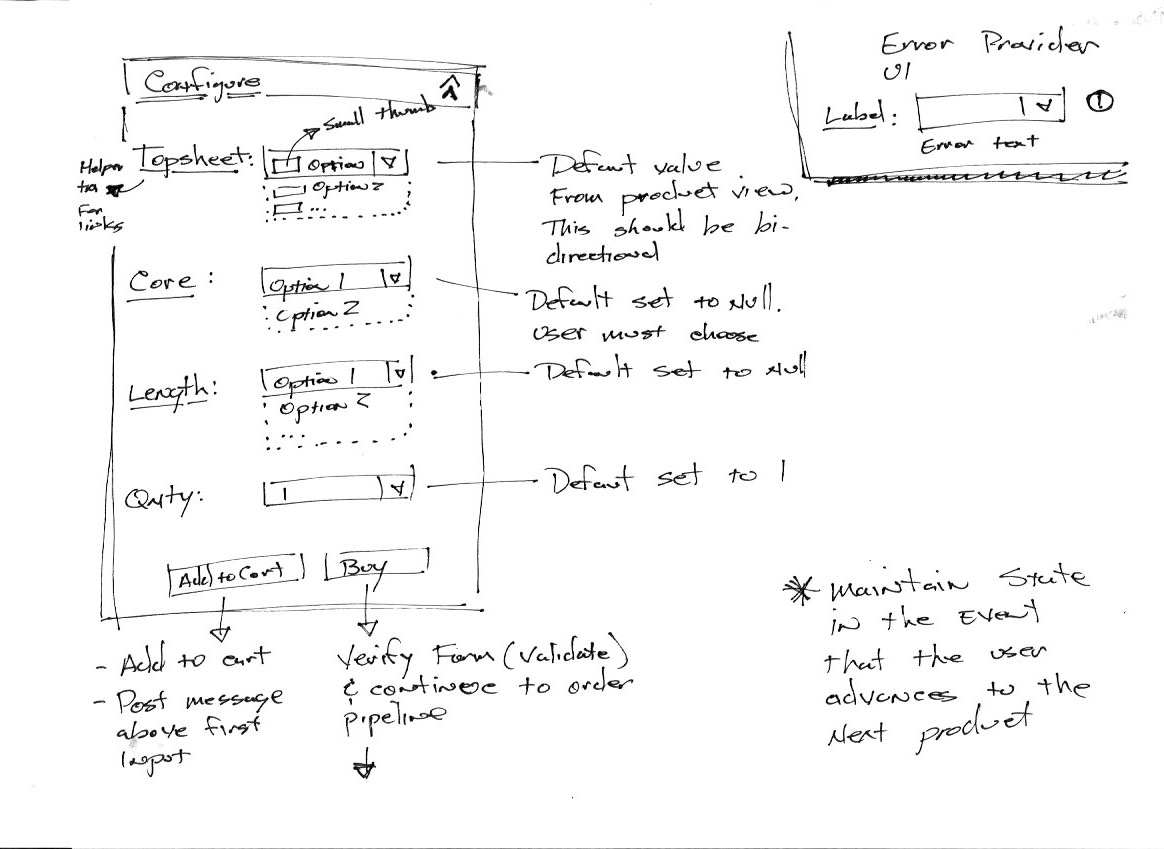 Configure
small thumb
Topsheet: Option
Option 2
...
Helper
For
links
Default value
From product view,
This should be bi-
directional
Core: Option 1
Option 2
Default set to Null.
User must choose
Length: Option 1
Option 2
Default set to Null
Qnty: 1
Default set to 1
Add to Cart Buy
- Add to cart
- Post message
above first
input
Verify Form (validate)
& continue to order
pipeline
Error Provider
UI
Label:
Error text
* Maintain State
in the Event
that the user
advances to the
Next product